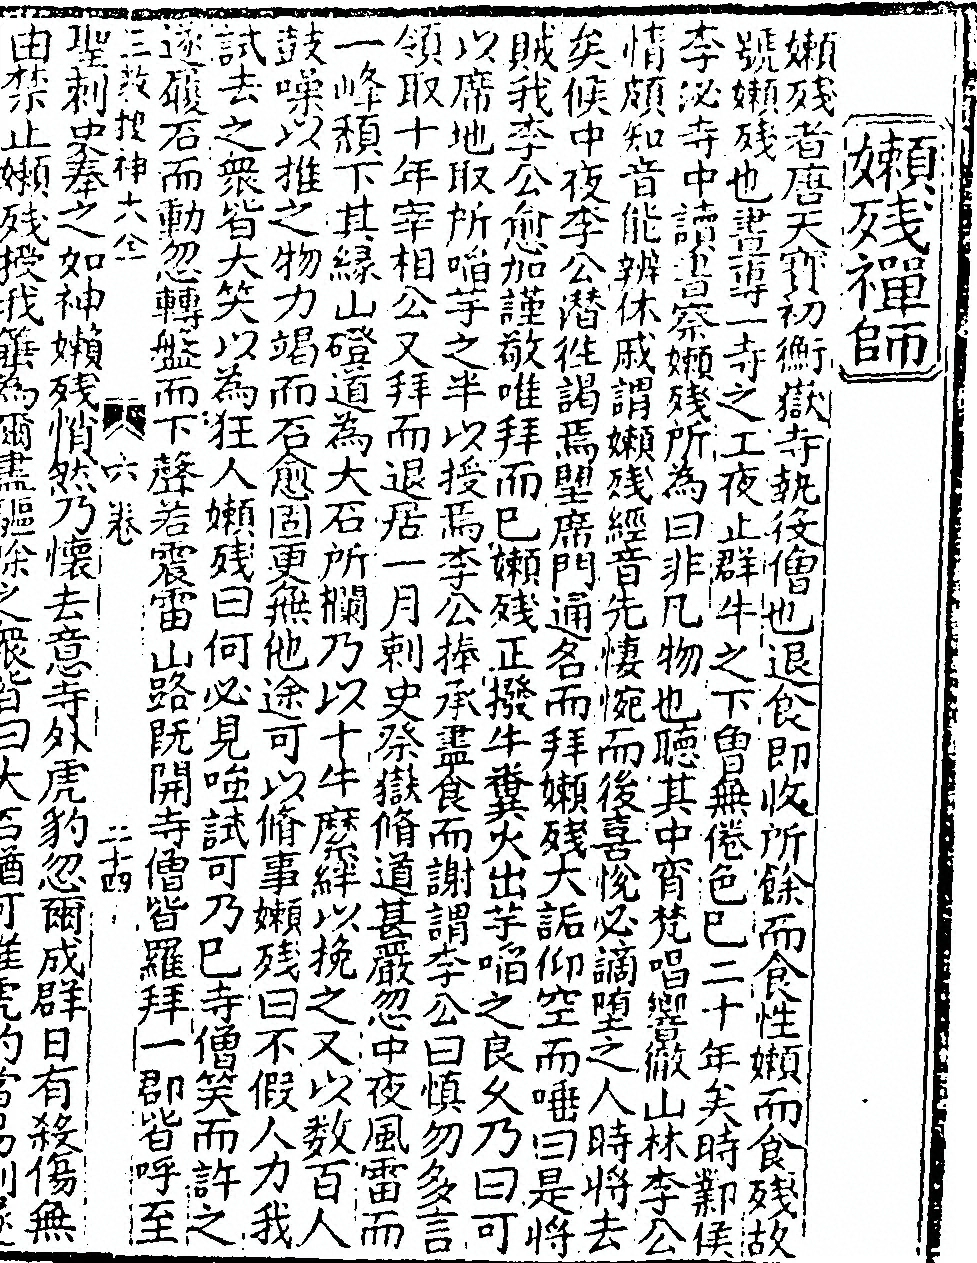 嬾残禪師
嬾残者唐天寶初衡嶽寺執役僧也退食即收所餘而食性嬾而食残故
號嬾残也晝專一寺之工夜止群牛之下曾無倦色已二十年矣時鄴侯
李泌寺中讀書察嬾残所為曰非凡物也聽其中宵梵唱響徹山林李公
情頗知音能辨休戚謂嬾残經音先悽惋而後喜悅必謫堕之人時將去
矣候中夜李公潜徃謁焉望席門通名而拜嬾残大詬仰空而唾曰是將
賊我李公愈加謹敬唯拜而已嬾残正撥牛糞火出芋啗之良乆乃曰可
以席地取所啗芋之半以授焉李公捧承盡食而謝謂李公曰慎勿多言
領取十年宰相公又拜而退居一月刺史祭嶽脩道甚嚴忽中夜風雷而
一峰頹下其縁山磴道為大石所欄乃以十牛縻絆以挽之又以数百人
鼓噪以推之物力竭而石愈固更無他途可以脩事嬾残曰不假人力我
試去之衆皆大笑以為狂人嬾残曰何必見嗤試可乃已寺僧笑而許之
遂履石而動忽轉盤而下聲若震雷山路既開寺僧皆羅拜一郡皆呼至
三教搜神大全 六卷 二十四
聖刺史奉之如神嬾残悄然乃懷去意寺外虎豹忽爾成群日有殺傷無
由禁止嬾残授我箠為爾盡驅除之衆皆曰大石猶可推虎豹當易制遂